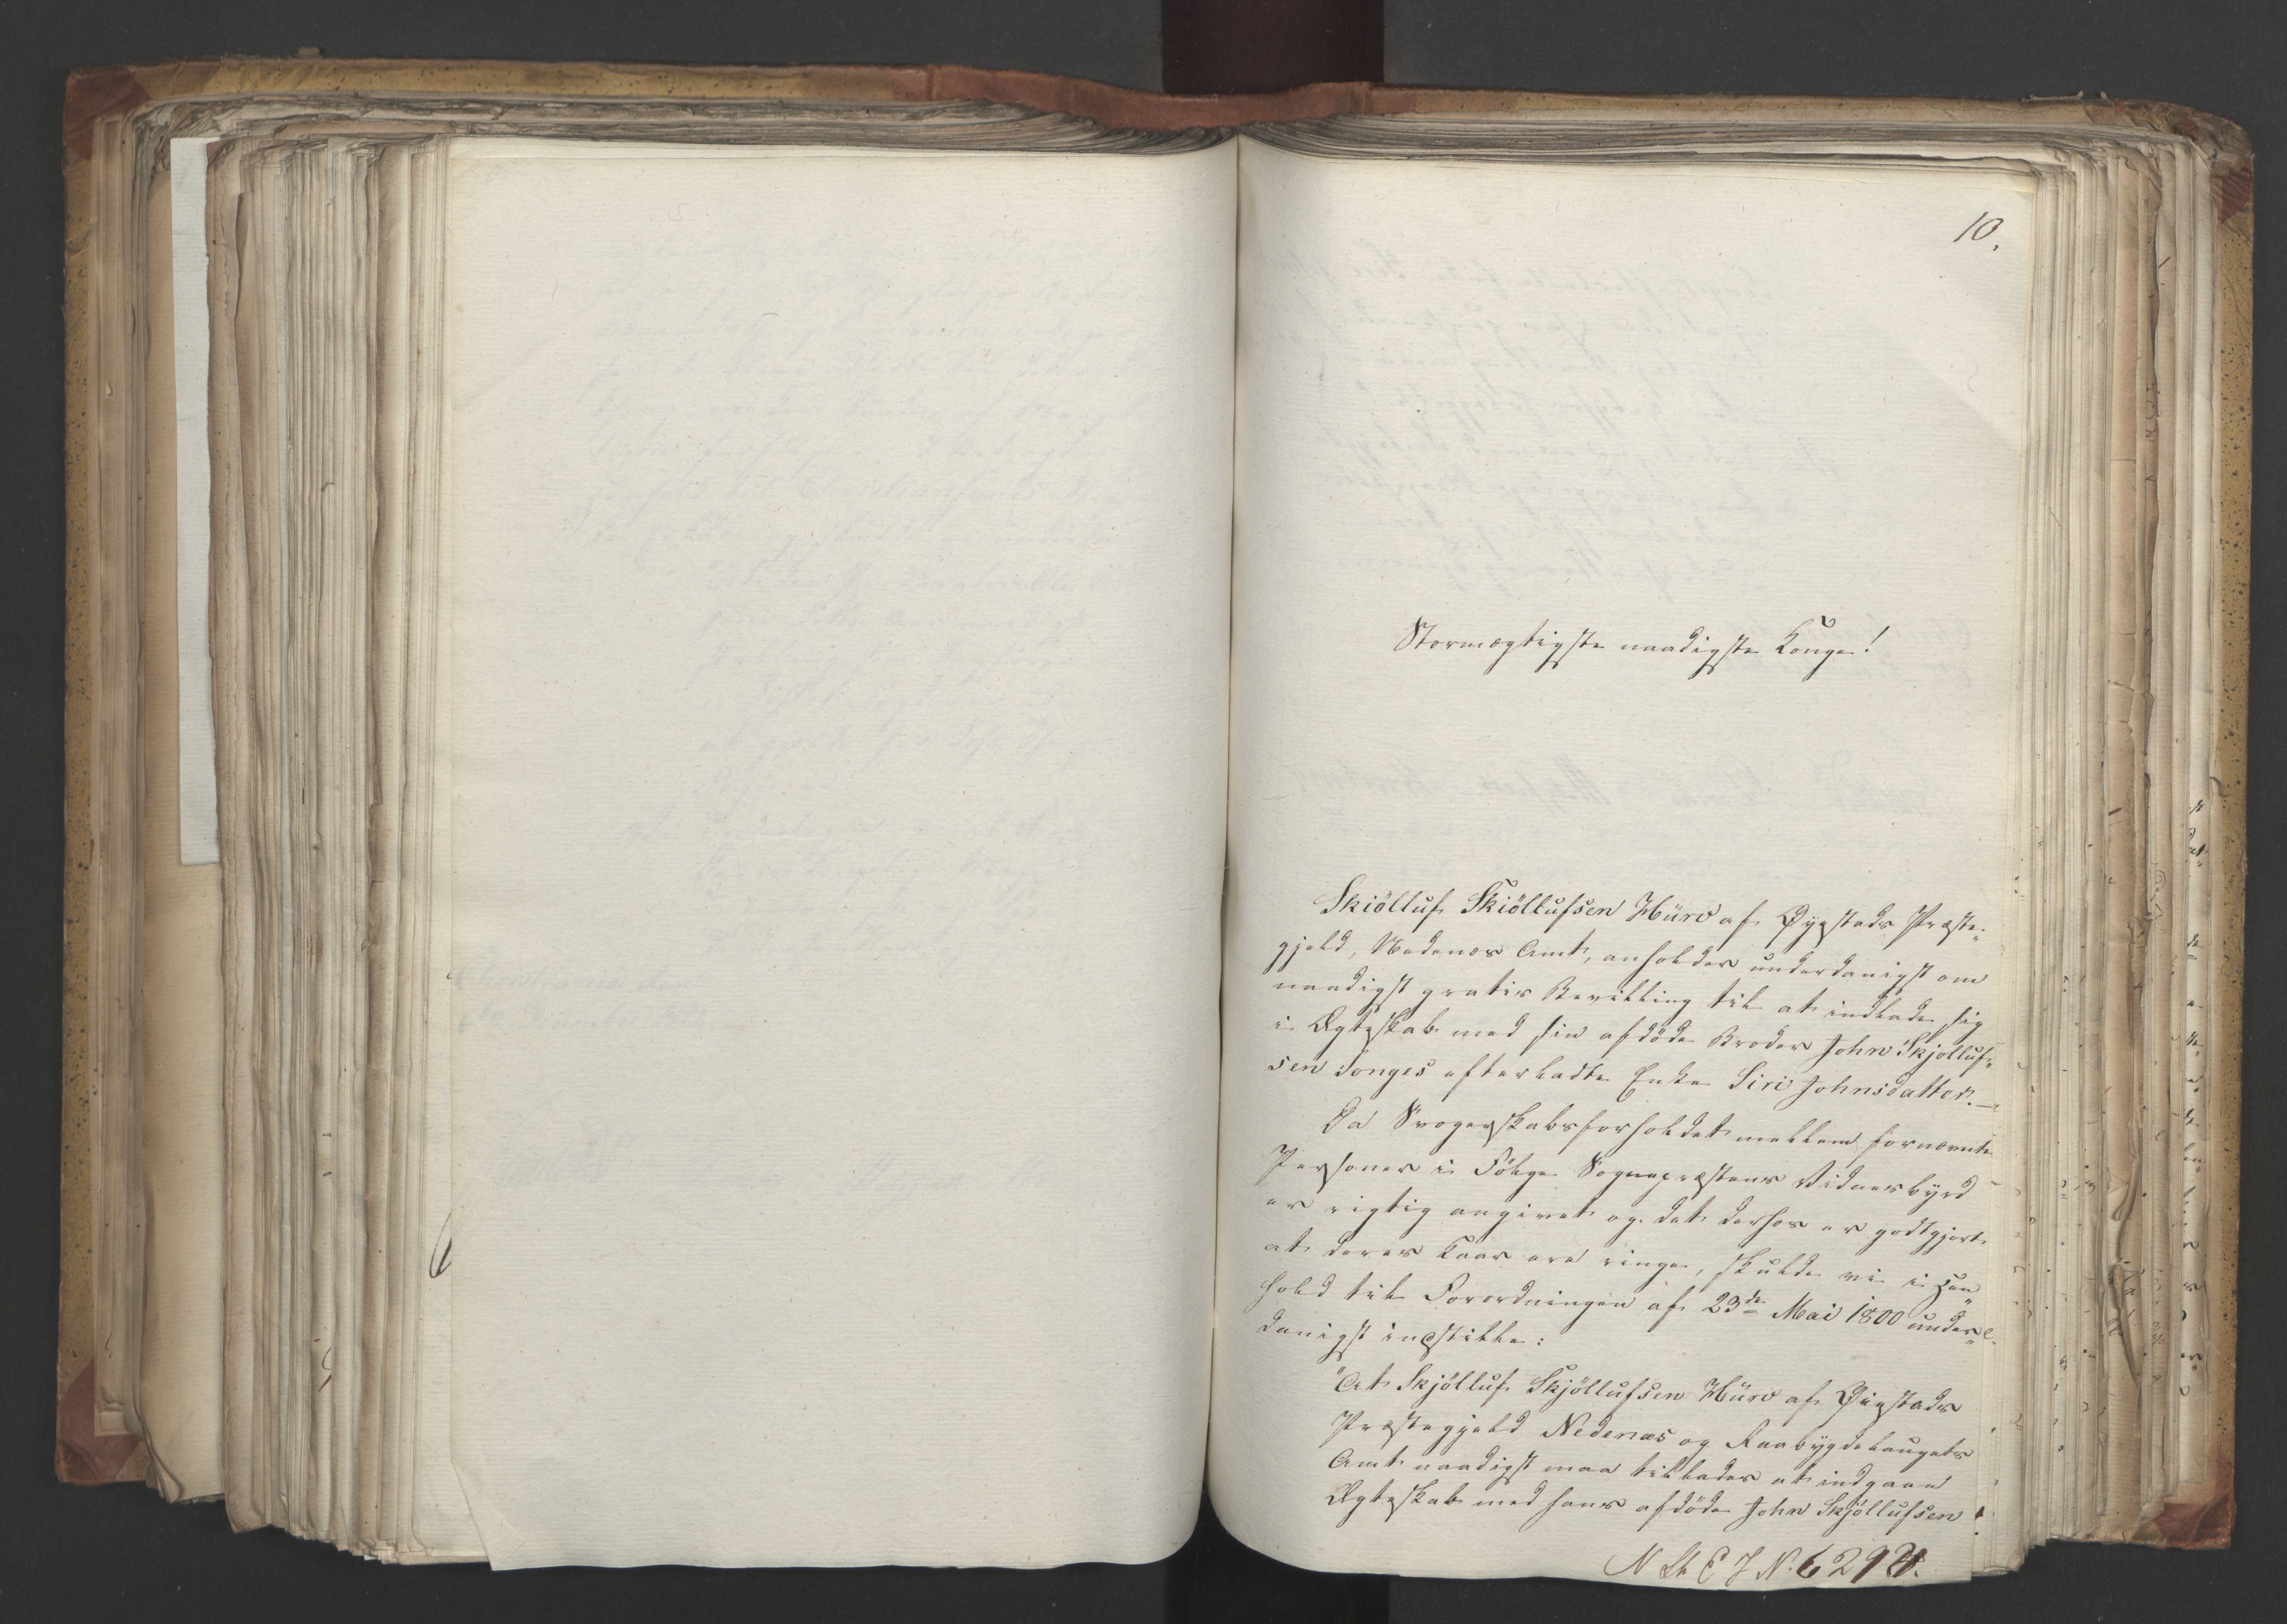 10.
Stormægtigste naadigste Konge!
Skiölluf Skiöllufsen Hürv af Øyestads Præste-
gjeld, Nedenæs Amt, anholder underdanigst om
naadigst gratis Bevilling til at indlade sig
i Ægteskab med sin afdöde Broder John Skjölluf-
sen Songes efterladte Enke Siri Johnsdatter. —
Da Svogerskabsforholdet mellem fornævnte
Personer i Fölge Sognepræstens Vidnesbyrd
er rigtig angivet og det derhos er godtgjort
at deres Kaar ere ringe, skulde vi i Hen-
hold til Forordningen af 23de Mai 1800 under-
danigst indstille:
"At Skjölluf Skjöllufsen Hürv af Øiestads
Præstegjeld Nedenæs og Raabygdelaugets
Amt naadigst maa tillades at indgaae
Ægteskab med hans afdöde John Skjöllufsen